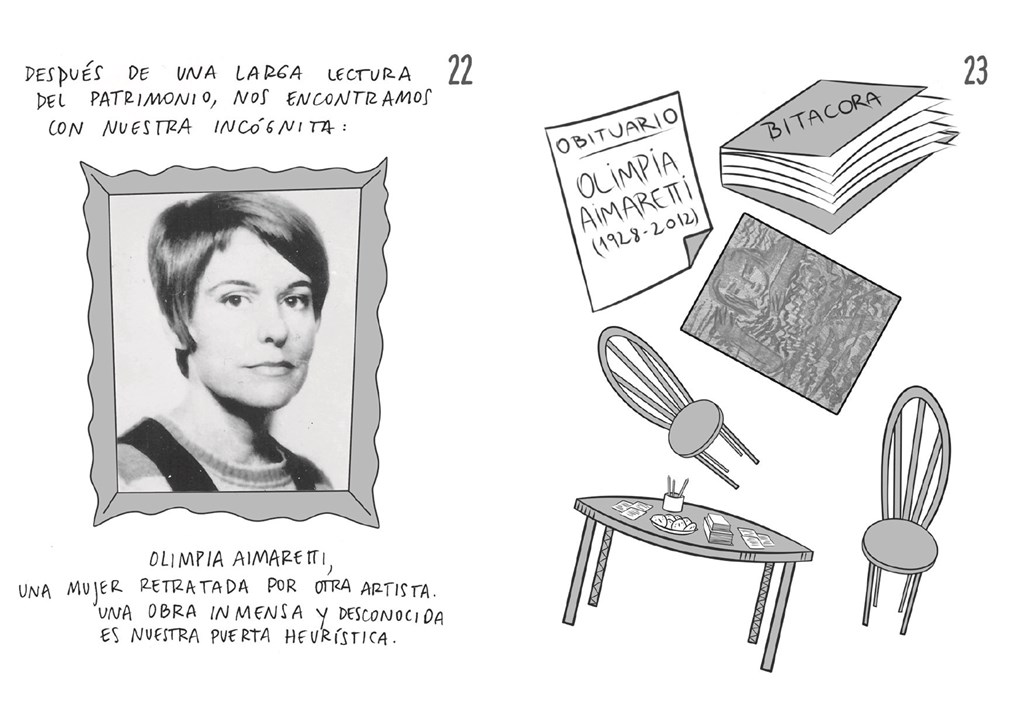 22
DESPUÉS DE UNA LARGA LECTURA
DEL PATRIMONIO, NOS ENCONTRAMOS
CON NUESTRA INCÓGNITA:
OLIMPIA AIMARETTI,
UNA MUJER RETRATADA POR OTRA ARTISTA.
UNA OBRA INMENSA Y DESCONOCIDA
ES NUESTRA PUERTA HEURÍSTICA.
23
OBITUARIO
OLIMPIA
AIMARETTI
(1928-2012)
BITACORA